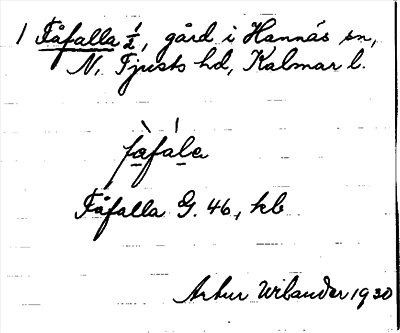 1 Fåfalla 1/2, gård i Hannäs sn,
N. Tjusts hd, Kalmar l.
fåfala
Fåfalla G. 46, kb
Artur Wilander 1930